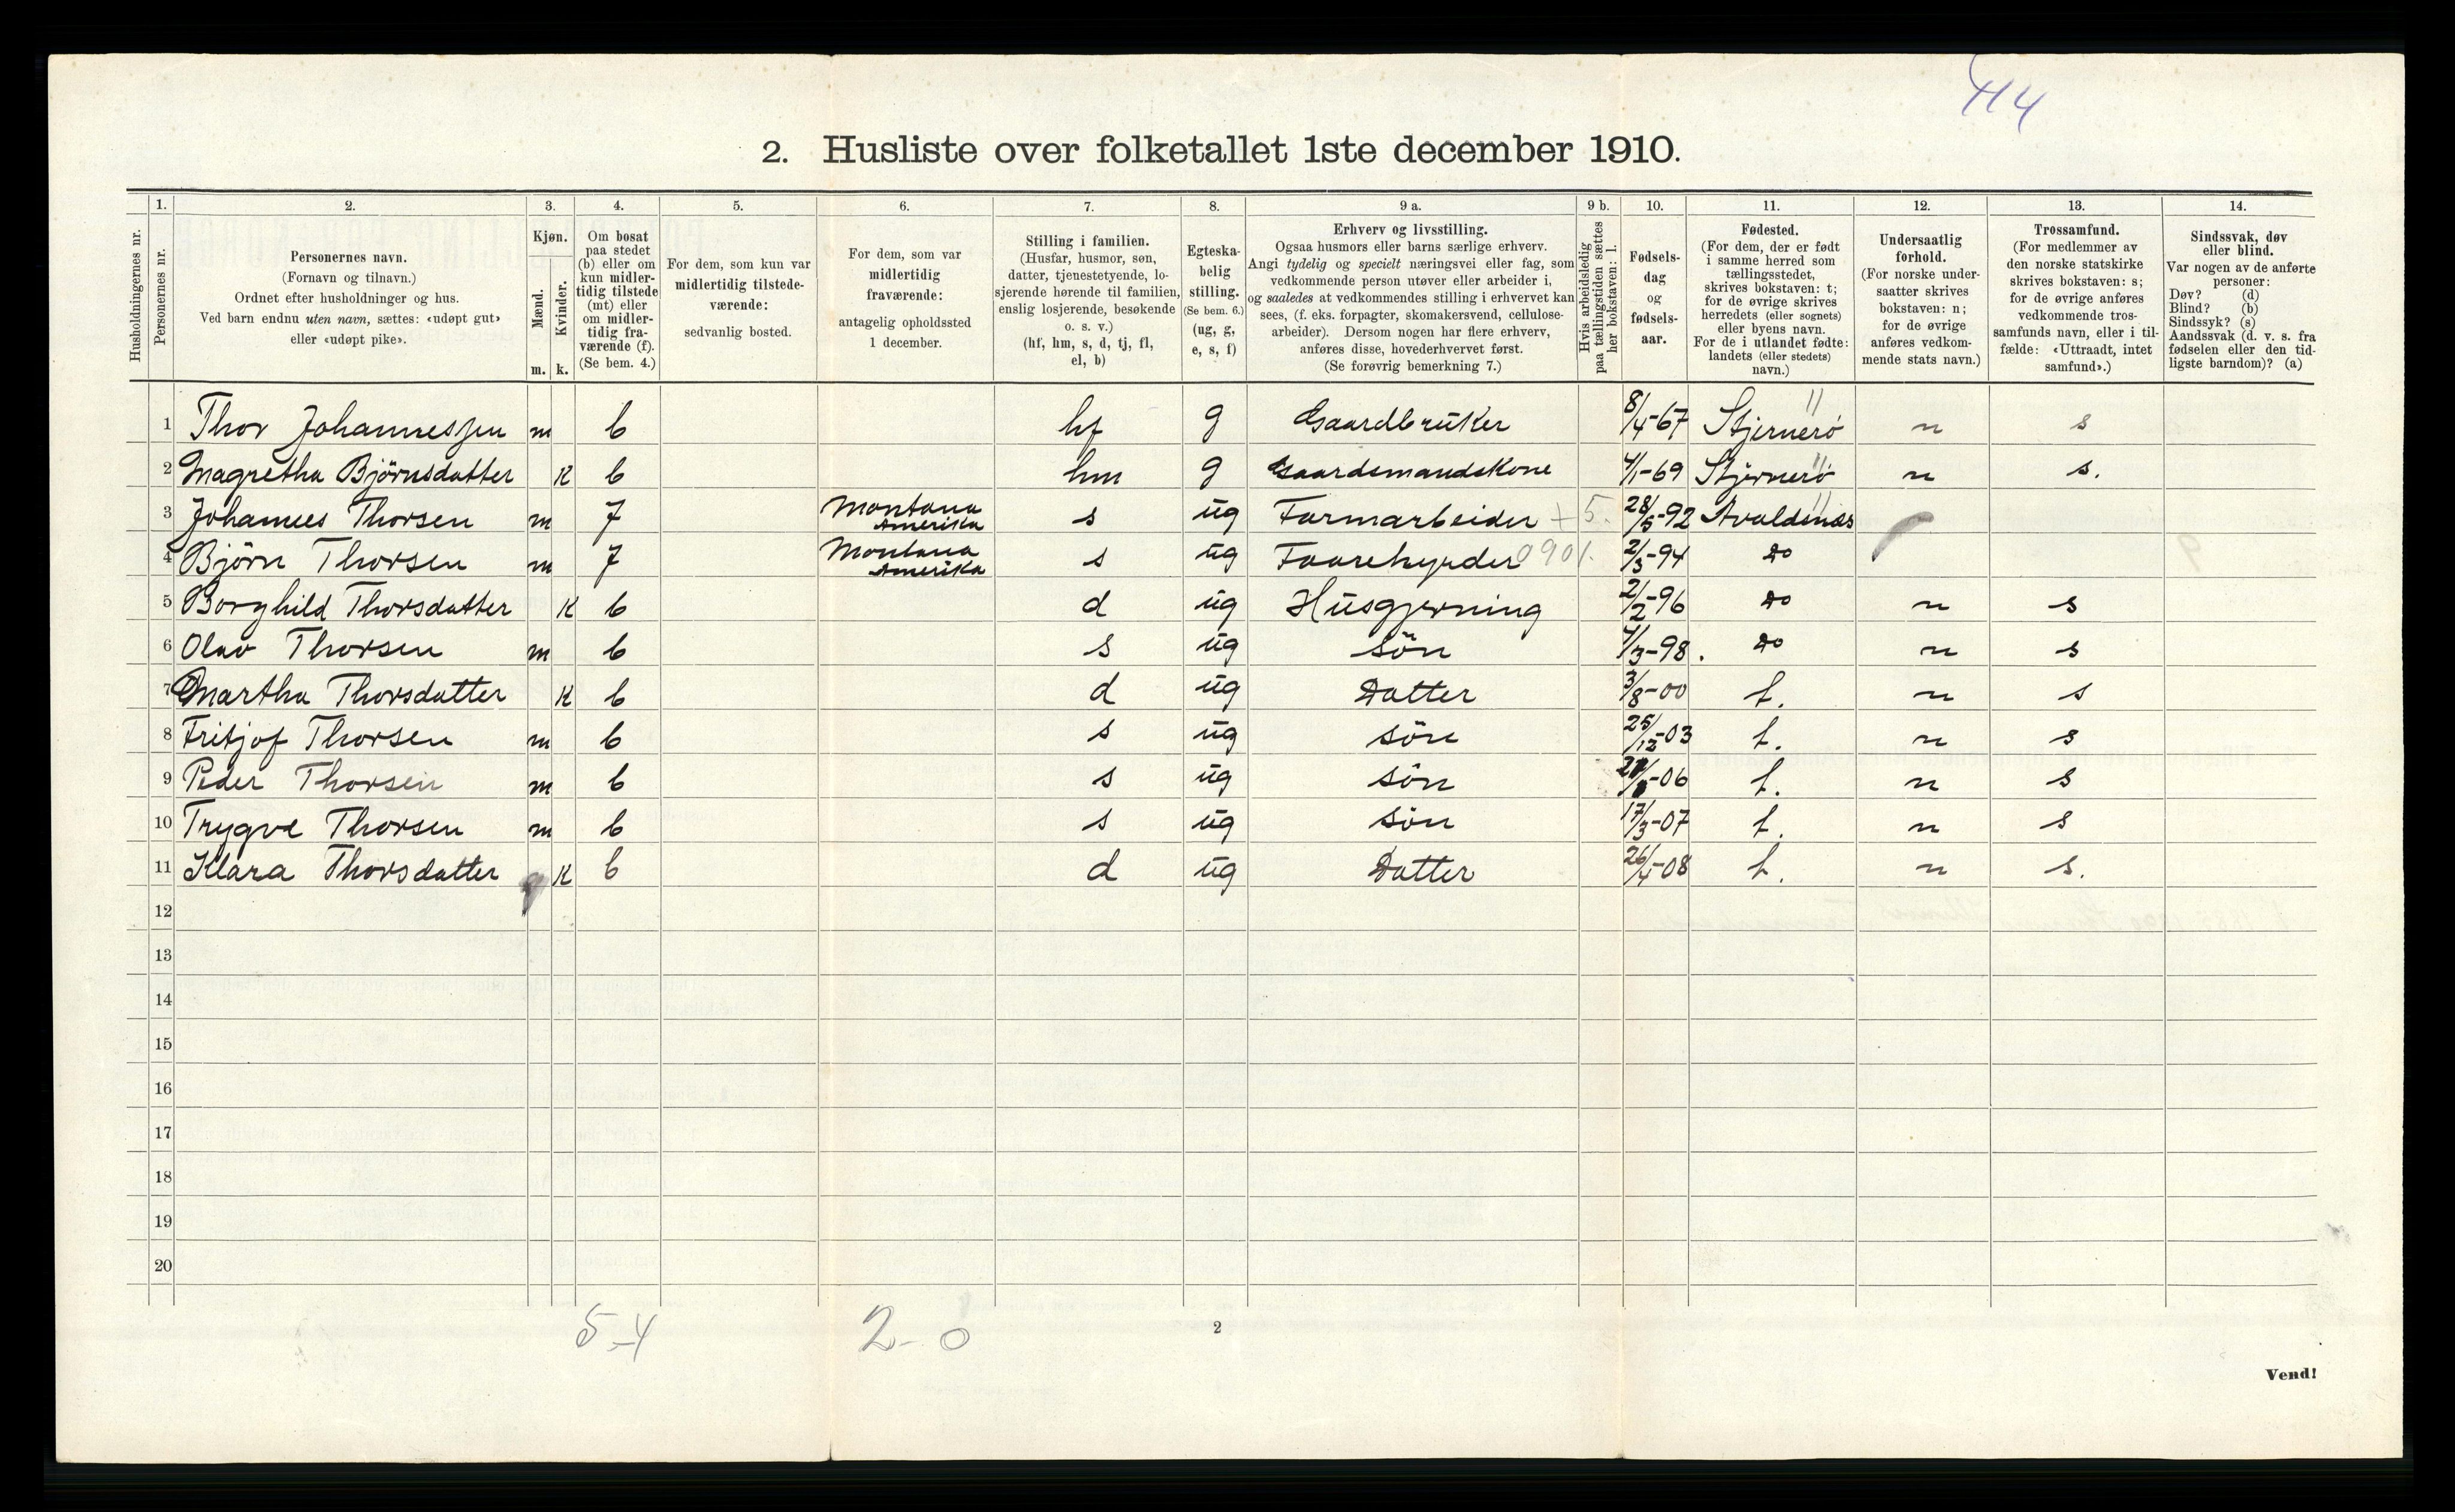 414
2. Husliste over folketallet 1ste december 1910.
Husholdningernes nr.
1. Personernes nr.
2. Personernes navn. (Fornavn og tilnavn.) Ordnet efter husholdninger og hus. Ved barn endnu uten navn, sættes: «udøpt gut» eller «udøpt pike».
3. Kjøn. Mænd. m. Kvinder. k.
4. Om bosat paa stedet (b) eller om kun midlertidig tilstede (mt) eller om midlertidig fraværende (f). (Se bem. 4.)
5. For dem, som kun var midlertidig tilstedeværende: sedvanlig bosted.
6. For dem, som var midlertidig fraværende: antagelig opholdssted 1 december.
7. Stilling i familien. (Husfar, husmor, søn, datter, tjenestetyende, losjerende hørende til familien, enslig losjerende, besøkende o. s. v.) (hf, hm, s, d, tj, fl, el, b)
8. Egteskabelig stilling. (Se bem. 6.) (ug, g, e, s, f)
9 a. Erhverv og livsstilling. Ogsaa husmors eller barns særlige erhverv. Angi tydelig og specielt næringsvei eller fag, som vedkommende person utøver eller arbeider i, og saaledes at vedkommendes stilling i erhvervet kan sees, (f. eks. forpagter, skomakersvend, cellulosearbeider). Dersom nogen har flere erhverv, anføres disse, hovederhvervet først. (Se forøvrig bemerkning 7.)
9 b. Hvis arbeidsledig paa tællingstiden sættes her bokstaven: l.
10. Fødselsdag og fødselsaar.
11. Fødested. (For dem, der er født i samme herred som tællingsstedet, skrives bokstaven: t; for de øvrige skrives herredets (eller sognets) eller byens navn. For de i utlandet fødte: landets (eller stedets) navn.)
12. Undersaatlig forhold. (For norske undersaatter skrives bokstaven: n; for de øvrige anføres vedkommende stats navn.)
13. Trossamfund. (For medlemmer av den norske statskirke skrives bokstaven: s; for de øvrige anføres vedkommende trossamfunds navn, eller i tilfælde: «Uttraadt, intet samfund».)
14. Sindssvak, døv eller blind. Var nogen av de anførte personer: Døv? (d) Blind? (b) Sindssyk? (s) Aandssvak (d. v. s. fra fødselen eller den tidligste barndom)? (a)
1 Thor Johannessen m b hf g Gaardbruker 8/4-67 Stjernerö " n s
2 Magretha Björnsdatter K b hm g Gaardsmandskone 4/1-69 Stjernerö " n s.
3 Johannes Thorsen m f Montana Amerika s ug Farmarbeider + 5. 28/5-92 Avaldsnæs "
4 Björn Thorsen m f Montana Amerika s ug Faarehyrder 0901. 2/3-94 Do
5 Borghild Thorsdatter K b d ug Husgjerning 2/2-96 Do n s
6 Olav Thorsen m b s ug Sön 4/3-98. Do n s
7 Martha Thorsdatter K b d ug Datter 3/8-00 t. n s
8 Fritjof Thorsen m b s ug Sön 25/12-03 t. n s
9 Peder Thorsen m b s ug Sön -06 t. n s
10 Trygve Thorsen m b s ug Sön 17/3-07 t. n s
11 Klara Thorsdatter K b d ug Datter 26/4-08 t. n s.
12
13
14
15
16
17
18
19
20
5-4 2-0
2
Vend!